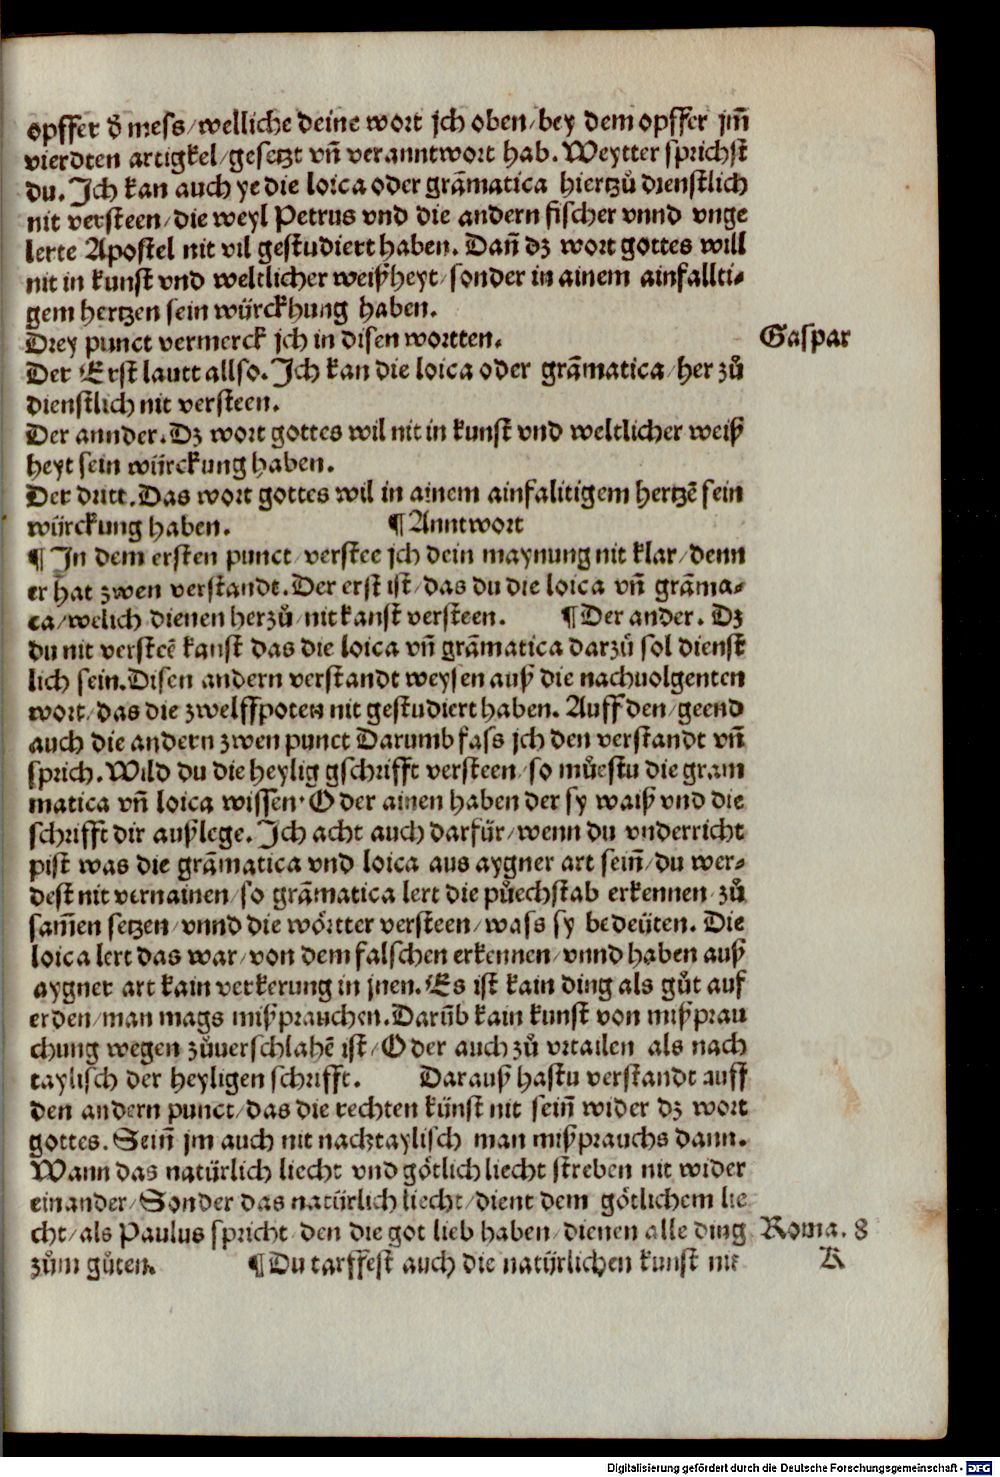 opffer đ mess/welliche deine wort jch oben/bey dem opffer jm̃
vierdten artigkel/gesetzt vñ veranntwort hab. Weytter sprichst
du. Jch kan auch ye die loica oder grãmatica hiertzů dienstlich
nit versteen/die weyl Petrus vnd die andern fischer vnnd vnge
lerte Apostel nit vil gestudiert haben. Dañ dz wort gottes will
nit in kunst vnd weltlicher weißheyt/sonder in ainem ainfallti-
gem hertzen sein würckhung haben.
Drey punct vermerck jch in disen wortten.
Gaspar
Der Erst lautt allso. Jch kan die loica oder grãmatica/her zů
dienstlich nit versteen.
Der annder. Dz wort gottes wil nit in kunst vnd weltlicher weiß
heyt sein würckung haben.
Der dritt. Das wort gottes wil in ainem ainfalitigem hertzẽ sein
würckung haben. ¶ Anntwort
¶ Jn dem ersten punct/verstee jch dein maynung nit klar/denn
er hat zwen verstandt. Der erst ist/das du die loica vñ grãma-
ca/welich dienen herzů/nit kanst versteen. ¶ Der ander. Dz
du nit versteẽ kanst das die loica vñ grãmatica darzů sol dienst
lich sein. Disen andern verstandt weysen auß die nachuolgenten
wort/das die zwelffpoten nit gestudiert haben. Auff den/geend
auch die andern zwen punct Darumb fass jch den verstandt vñ
sprich. Wild du die heylig gschrifft versteen/so můestu die gram
matica vñ loica wissen. Oder ainen haben der sy waiß vnd die
schrifft dir außlege. Jch acht auch darfür/wenn du vnderricht
pist was die grãmatica vnd loica aus aygner art seiñ/du wer-
dest nit vernainen/so grãmatica lert die půechstab erkennen/zů
sam̃en setzen/vnnd die wörtter versteen/wass sy bedeüten. Die
loica lert das war/von dem falschen erkennen/vnnd haben auß
aygner art kain verkerung in jnen. Es ist kain ding als gůt auf
erden/man mags mißprauchen. Darũb kain kunst von mißprau
chung wegen zůuerschlahẽ ist/Oder auch zů vrtailen als nach
taylisch der heyligen schrifft. Darauß hastu verstandt auff
den andern punct/das die rechten künst nit seiñ wider dz wort
gottes. Seiñ jm auch nit nachtaylisch man mißprauchs dann.
Wann das natürlich liecht vnd götlich liecht streben nit wider
einander/Sonder das natürlich liecht/dient dem götlichem lie
cht/als Paulus spricht/den die got lieb haben/dienen alle ding
Roma. 8
zům gůten. ¶ Du tarffest auch die natürlichen kunst nit
A
Digitalisierung gefördert durch die Deutsche Forschungsgemeinschaft - DFG